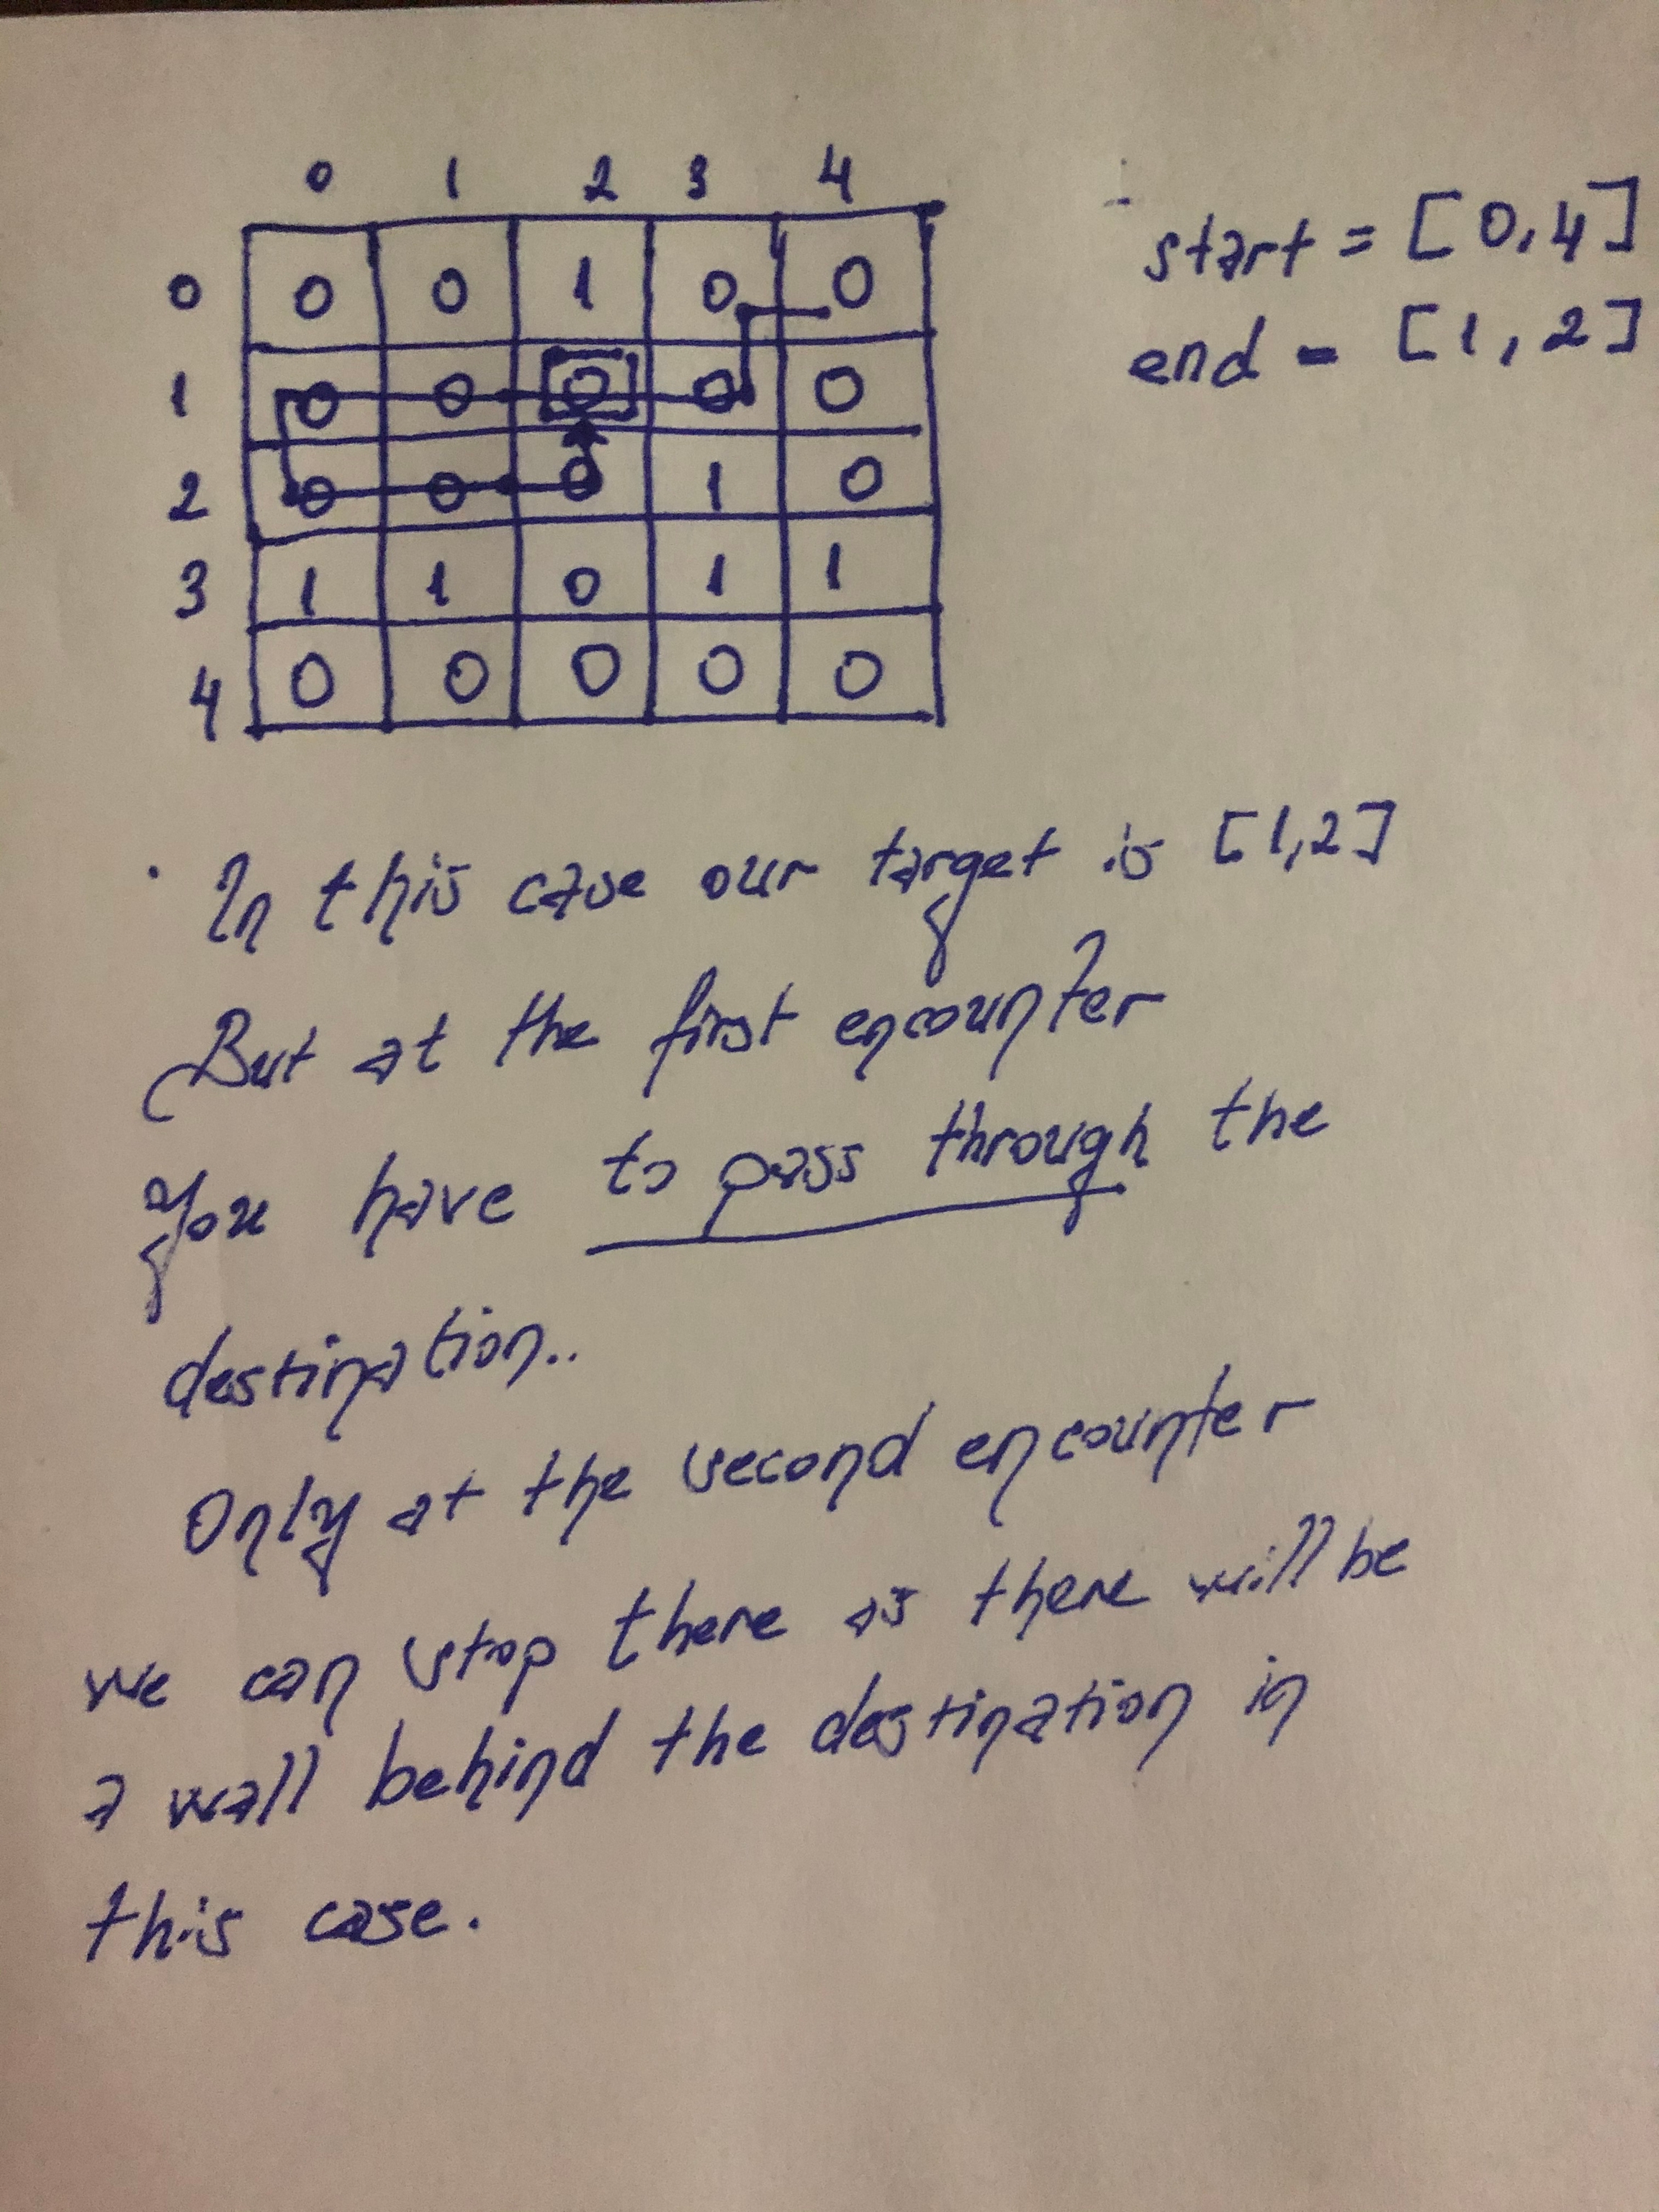 0 1 2 3 4
0 0 0 1 0 0
1 0 0 0 0 0
2 0 0 0 1 0
3 1 1 0 1 1
4 0 0 0 0 0
start = [0,4]
end = [1,2]
In this case our target is [1,2]
But at the first encounter
you have to pass through the
destination..
Only at the second encounter
we can stop there as there will be
a wall behind the destination in
this case.